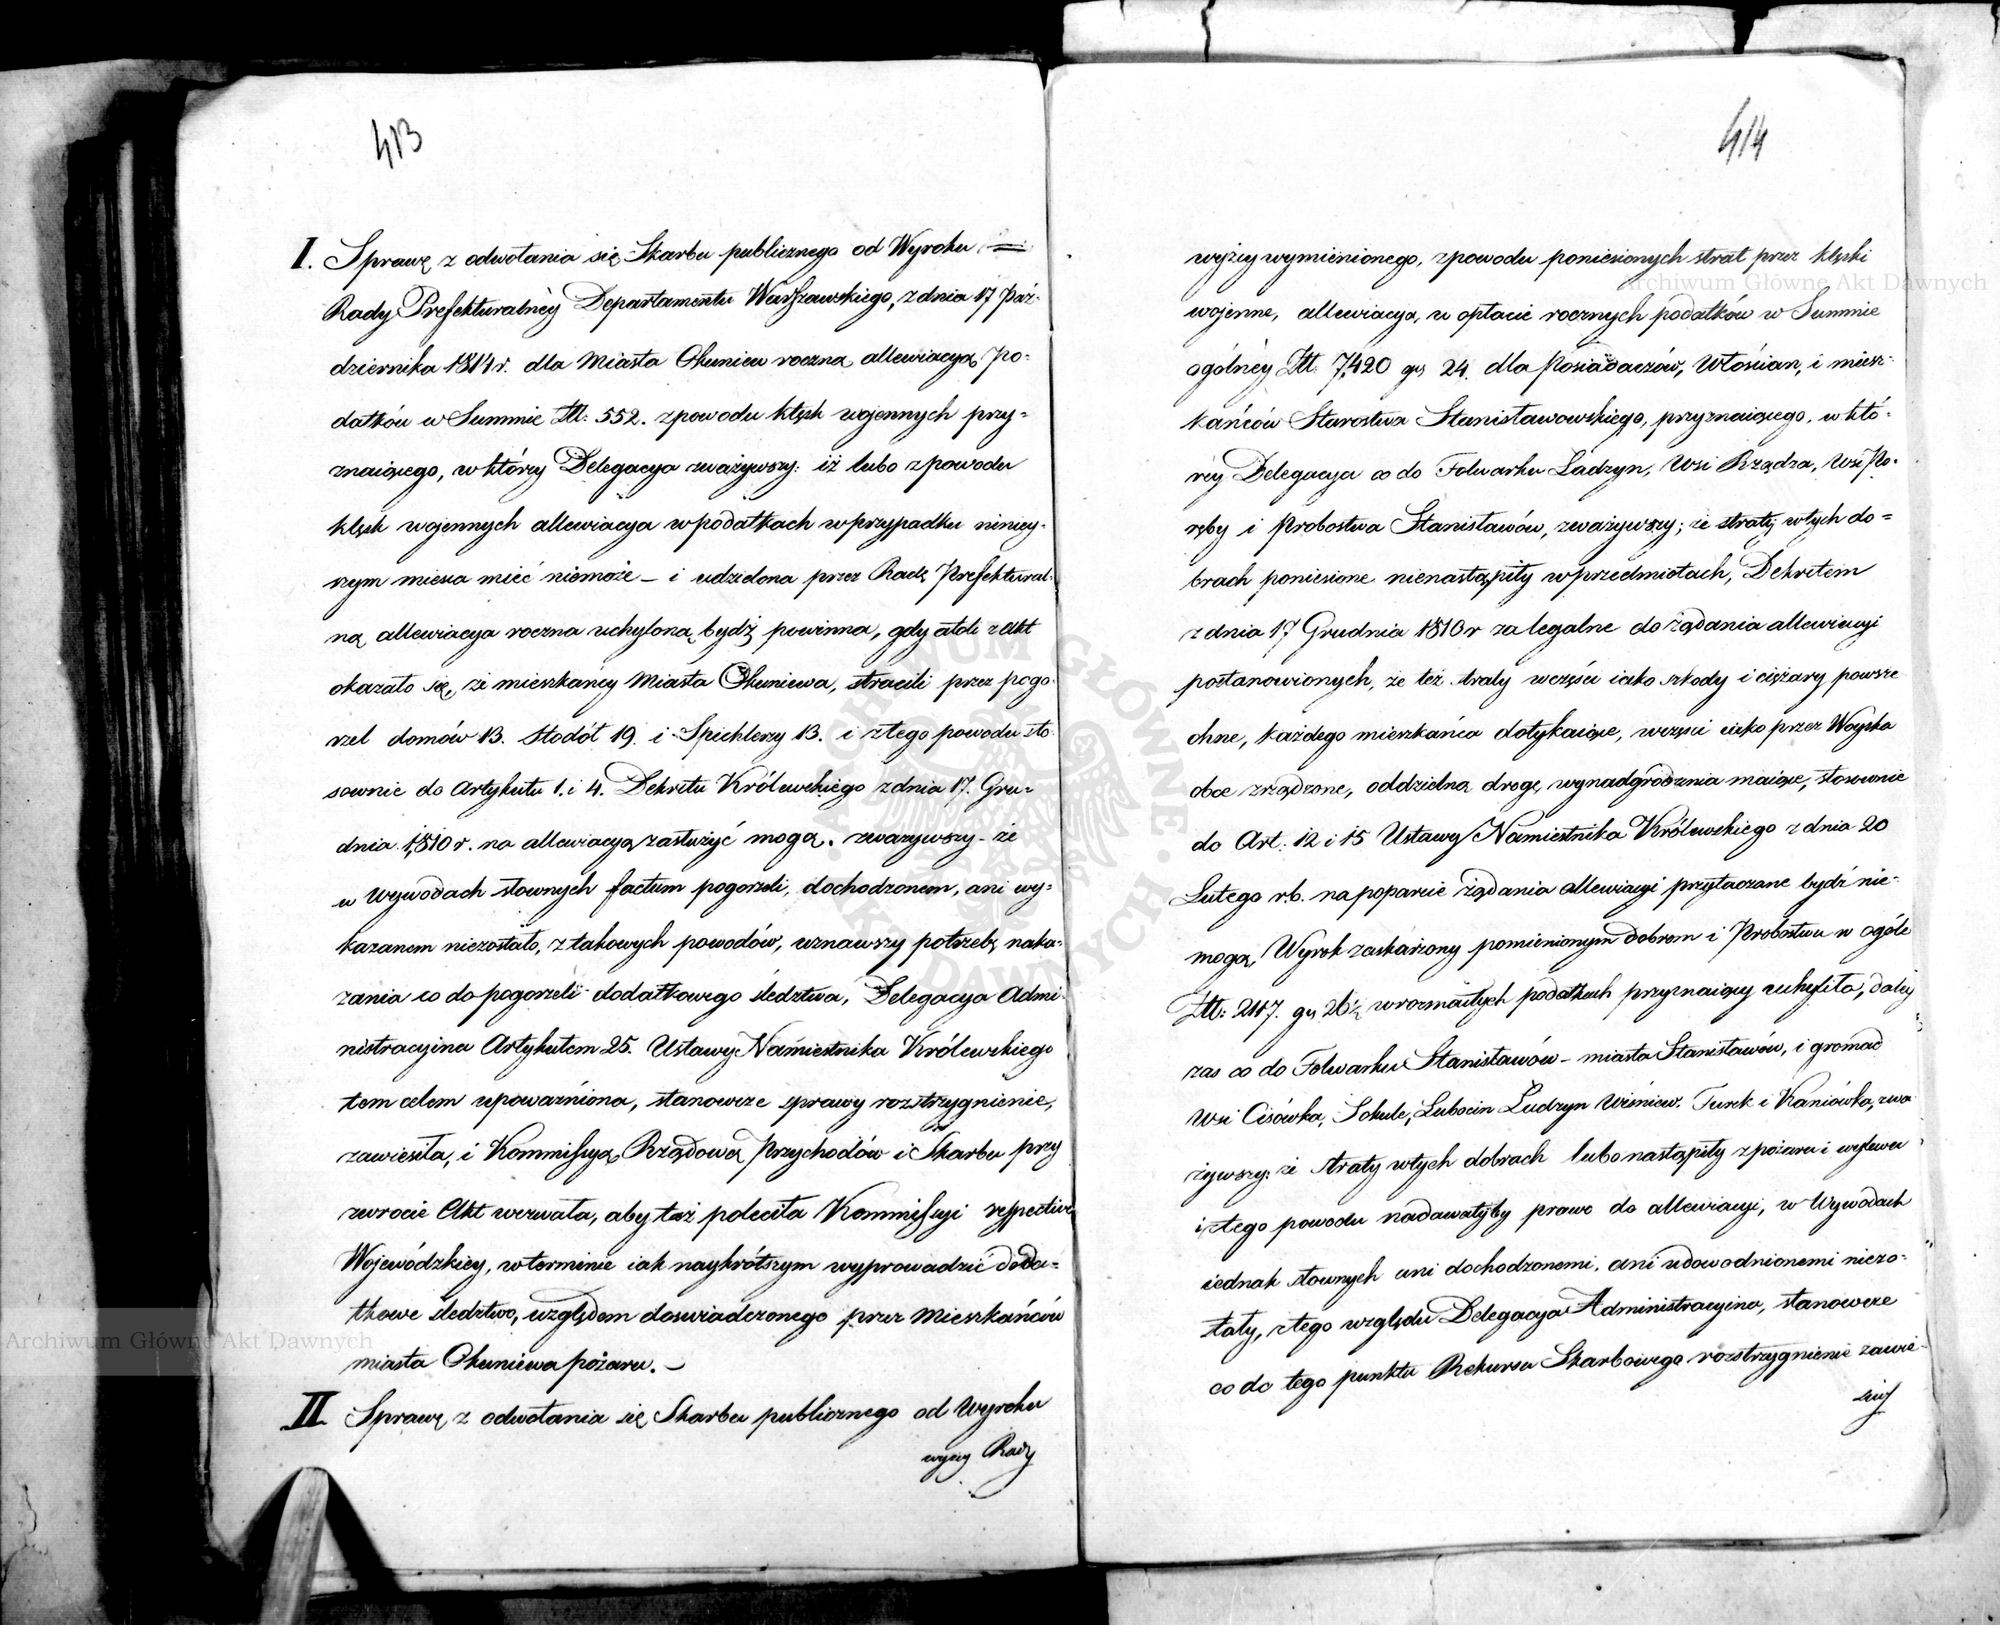 413
I. Sprawę z odwołania się Skarbu publicznego od Wyroku
Rady Prefekturalnéy Departamentu Warszawskiego, z dnia 17 Paź-
dziernika 1814 r. dla Miasta Okuniew roczną allewiacyą po-
datków w Summie Złł: 552. z powodu klęsk wojennych przy-
znaiącego, w któréy Delegacya zważywszy: iż lubo z powodu
klęsk wojennych allewiacya w podatkach w przypadku niniey-
szym mieysca mieć niemoże – i udzielona przez Radę Prefektural-
ną allewiacya roczna uchyloną bydź powinna, gdy atoli z Akt
okazało się, że mieszkańcy Miasta Okuniewa, stracili przez pogo-
rzel domów 13. Stodół 19. i Spichlerzy 13. i z tego powodu sto-
sownie do Artykułu 1. i 4. Dekretu Królewskiego z dnia 17. Gru-
dnia 1810 r. na allewiacyą zasłużyć mogą. zważywszy – że
w Wywodach słownych factum pogorzeli, dochodzonem, ani wy-
kazanem niezostało, z takowych powodów, uznawszy potrzebę naka-
zania co do pogorzeli dodatkowego śledztwa, Delegacya Admi-
nistracyina Artykułem 25. Ustawy Namiestnika Królewskiego
tem celem upoważniona, stanowcze sprawy rozstrzygnienie,
zawiesiła, i Kommissyą Rządową Przychodów i Skarbu przy
zwrocie Akt wezwała, aby też poleciła Kommissyi respective
Wojewódzkiey, w terminie iak naykrótszym wyprowadzić doda-
tkowe śledztwo, względem doswiadczonego przez Mieszkańców
miasta Okuniewa pożaru. –
II Sprawę z odwołania się Skarbu publicznego od Wyroku
wyżey Rady
414
wyżey wymienionego, z powodu poniesionych strat przez klęski
wojenne, allewiacyą w opłacie rocznych podatków w Summie
ogólnéy Złł: 7,420 gr 24. dla Posiadaczów, Włościan, i miesz-
kańców Starostwa Stanisławowskiego, przyznaiącego, w któ-
réy Delegacya co do Folwarku Ladzyn, Wsi Rządza, Wsi Po-
ręby i Probostwa Stanisławów, zważywszy; że straty w tych do-
brach poniesione nienastąpiły w przedmiotach, Dekretem
z dnia 17 Grudnia 1810 r za legalne do żądania allewiacyi
postanowionych, że też straty w części iako szkody i ciężary powsze
chne, każdego mieszkańca dotykaiące, w części iako przez Woyska
obce zrządzone, oddzielną drogę wynadgrodzenia maiące, stosownie
do Art: 12 i 15 Ustawy Namiestnika Królewskiego z dnia 20
Lutego r.b. na poparcie żądania allewiacyi przytaczane bydź nie-
mogą, Wyrok zaskarżony pomienionym dobrom i Probostwu w ogóle
Złł: 2117. gr 26½ w rozmaitych podatkach przyznaiący uchyliła, daley
zas co do Folwarku Stanisławów – miasta Stanisławów, i gromad
Wsi Cisówka, Sokule, Lubocin Ludzyn Wiśniew. Turek i Kaniówka, zwa
żywszy: że straty w tych dobrach lubo nastąpiły z pożaru i wylewu
i z tego powodu nadawałyby prawo do allewiacyi, w Wywodach
iednak słownych ani dochodzonemi, ani udowodnionemi niezo-
stały, z tego względu Delegacya Administracyina, stanowcze
co do tego punktu Rekursu Skarbowego rozstrzygnienie zawie-
Archiwum Główne Akt Dawnych
Archiwum Główne Akt Dawnych
ARCHIWUM GŁÓWNE AKT DAWNYCH